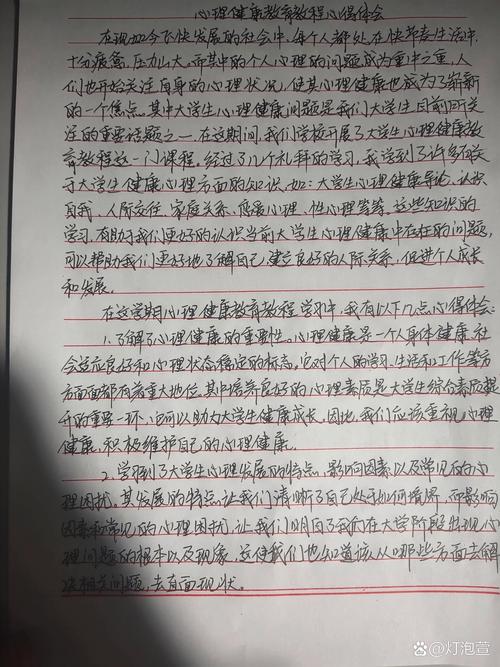 心理健康教育教程心得体会
在现如今飞快发展的社会中，每个人都处在快节奏生活中，
十分疲惫，压力山大。而其中的个人心理的问题成为重中之重，人
们也开始关注自身的心理状况，使其心理健康也成为了崭新
的一个焦点。其中大学生心理健康问题是我们大学生目前所关
注的重要话题之一。在这期间，我们学校开展了大学生心理健康教
育教程这一门课程，经过了几个礼拜的学习，我学到了许多有关
于大学生健康心理方面的知识，如：大学生心理健康导论、认识
自我、人际交往、家庭关系、恋爱心理、性心理等等。这些知识的
学习，有助于我们更好的认识当前大学生心理健康中存在的问题，
可以帮助我们更好地了解自己，建立良好的人际关系，促进个人成长
和发展。
在这学期心理健康教育教程学习中，我有以下几点心得体会：
1.了解了心理健康的重要性。心理健康是一个人身体健康、社
会适应良好和心理状态稳定的标志，它对个人的学习、生活和工作等方
方面面都有着重大地位。其中培养良好的心理素质是大学生综合素质提
升的重要一环，它可以助力大学生健康成长。因此，我们应该重视心理
健康，积极维护自己的心理健康。
2.学习到了大学生心理发展的特点、影响因素以及常见的心
理困扰。其发展的特点，让我们清晰了自己处于如何境界，而影响
因素和常见的心理困扰，让我们明白了我们在大学阶段出现心
理问题的根本以及现象，这使我们也知道该从哪些方面去解
决相关问题，去直面现状。
灯泡萱